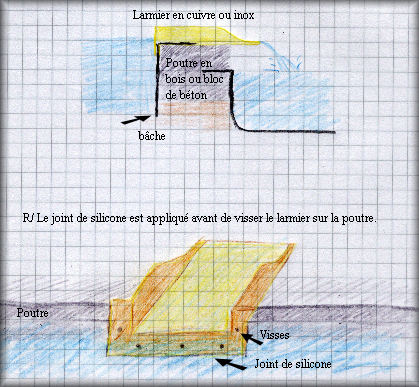 Larmier en cuivre ou inox
Poutre en
bois ou bloc
de béton
bâche
R/ Le joint de silicone est appliqué avant de visser le larmier sur la poutre.
Poutre
Visses
Joint de silicone